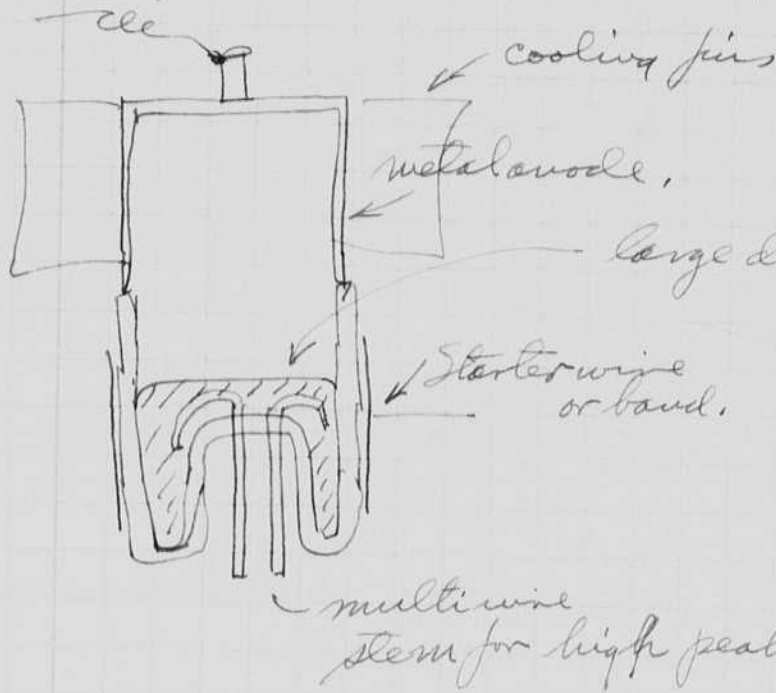 cooling fins
metal anode.
large
Starter wire
or band.
multiwire
stem for high peak